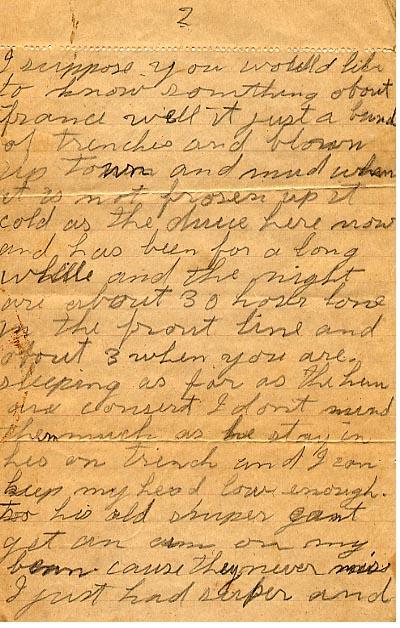 2
I suppose you would like
to know something about
france well it just a bunch
of trenches and blown
up town and mud when
it is not frozen up it
cold as the duice here now
and has been for a long
while and the night
are about 30 hours lone
in the front line and
about 3 when you are
sleeping as far as the hun
are consert I dont mind
them much as he stay in
his on trinch and I can
keep my head low enough.
so his old snuper cant
get an aim on my
bean cause they never miss
I just had super and